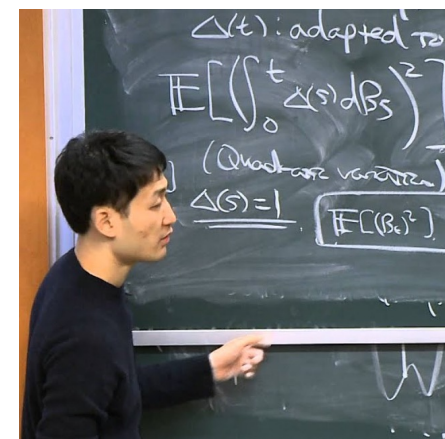 Δ(t): adapted to
𝔼[(∫₀ᵗ Δ(s) dB_s)²]
] (Quadratic variation)
Δ(s)=1 𝔼[(B_t)²]